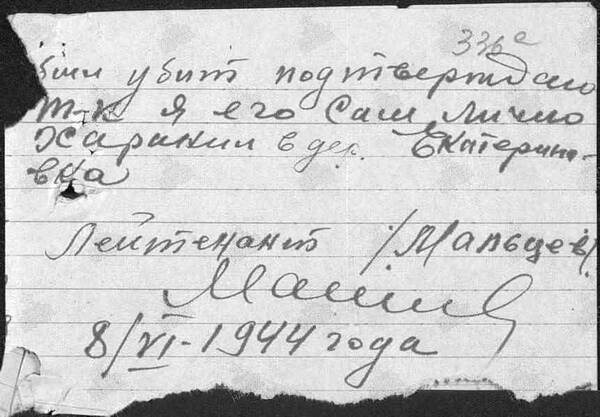 336а
был убит подтверждаю
т.к я его сам лично
харанил в дер. Екатерино-
вка
Лейтенант /Мальцев/
8/VI-1944 года